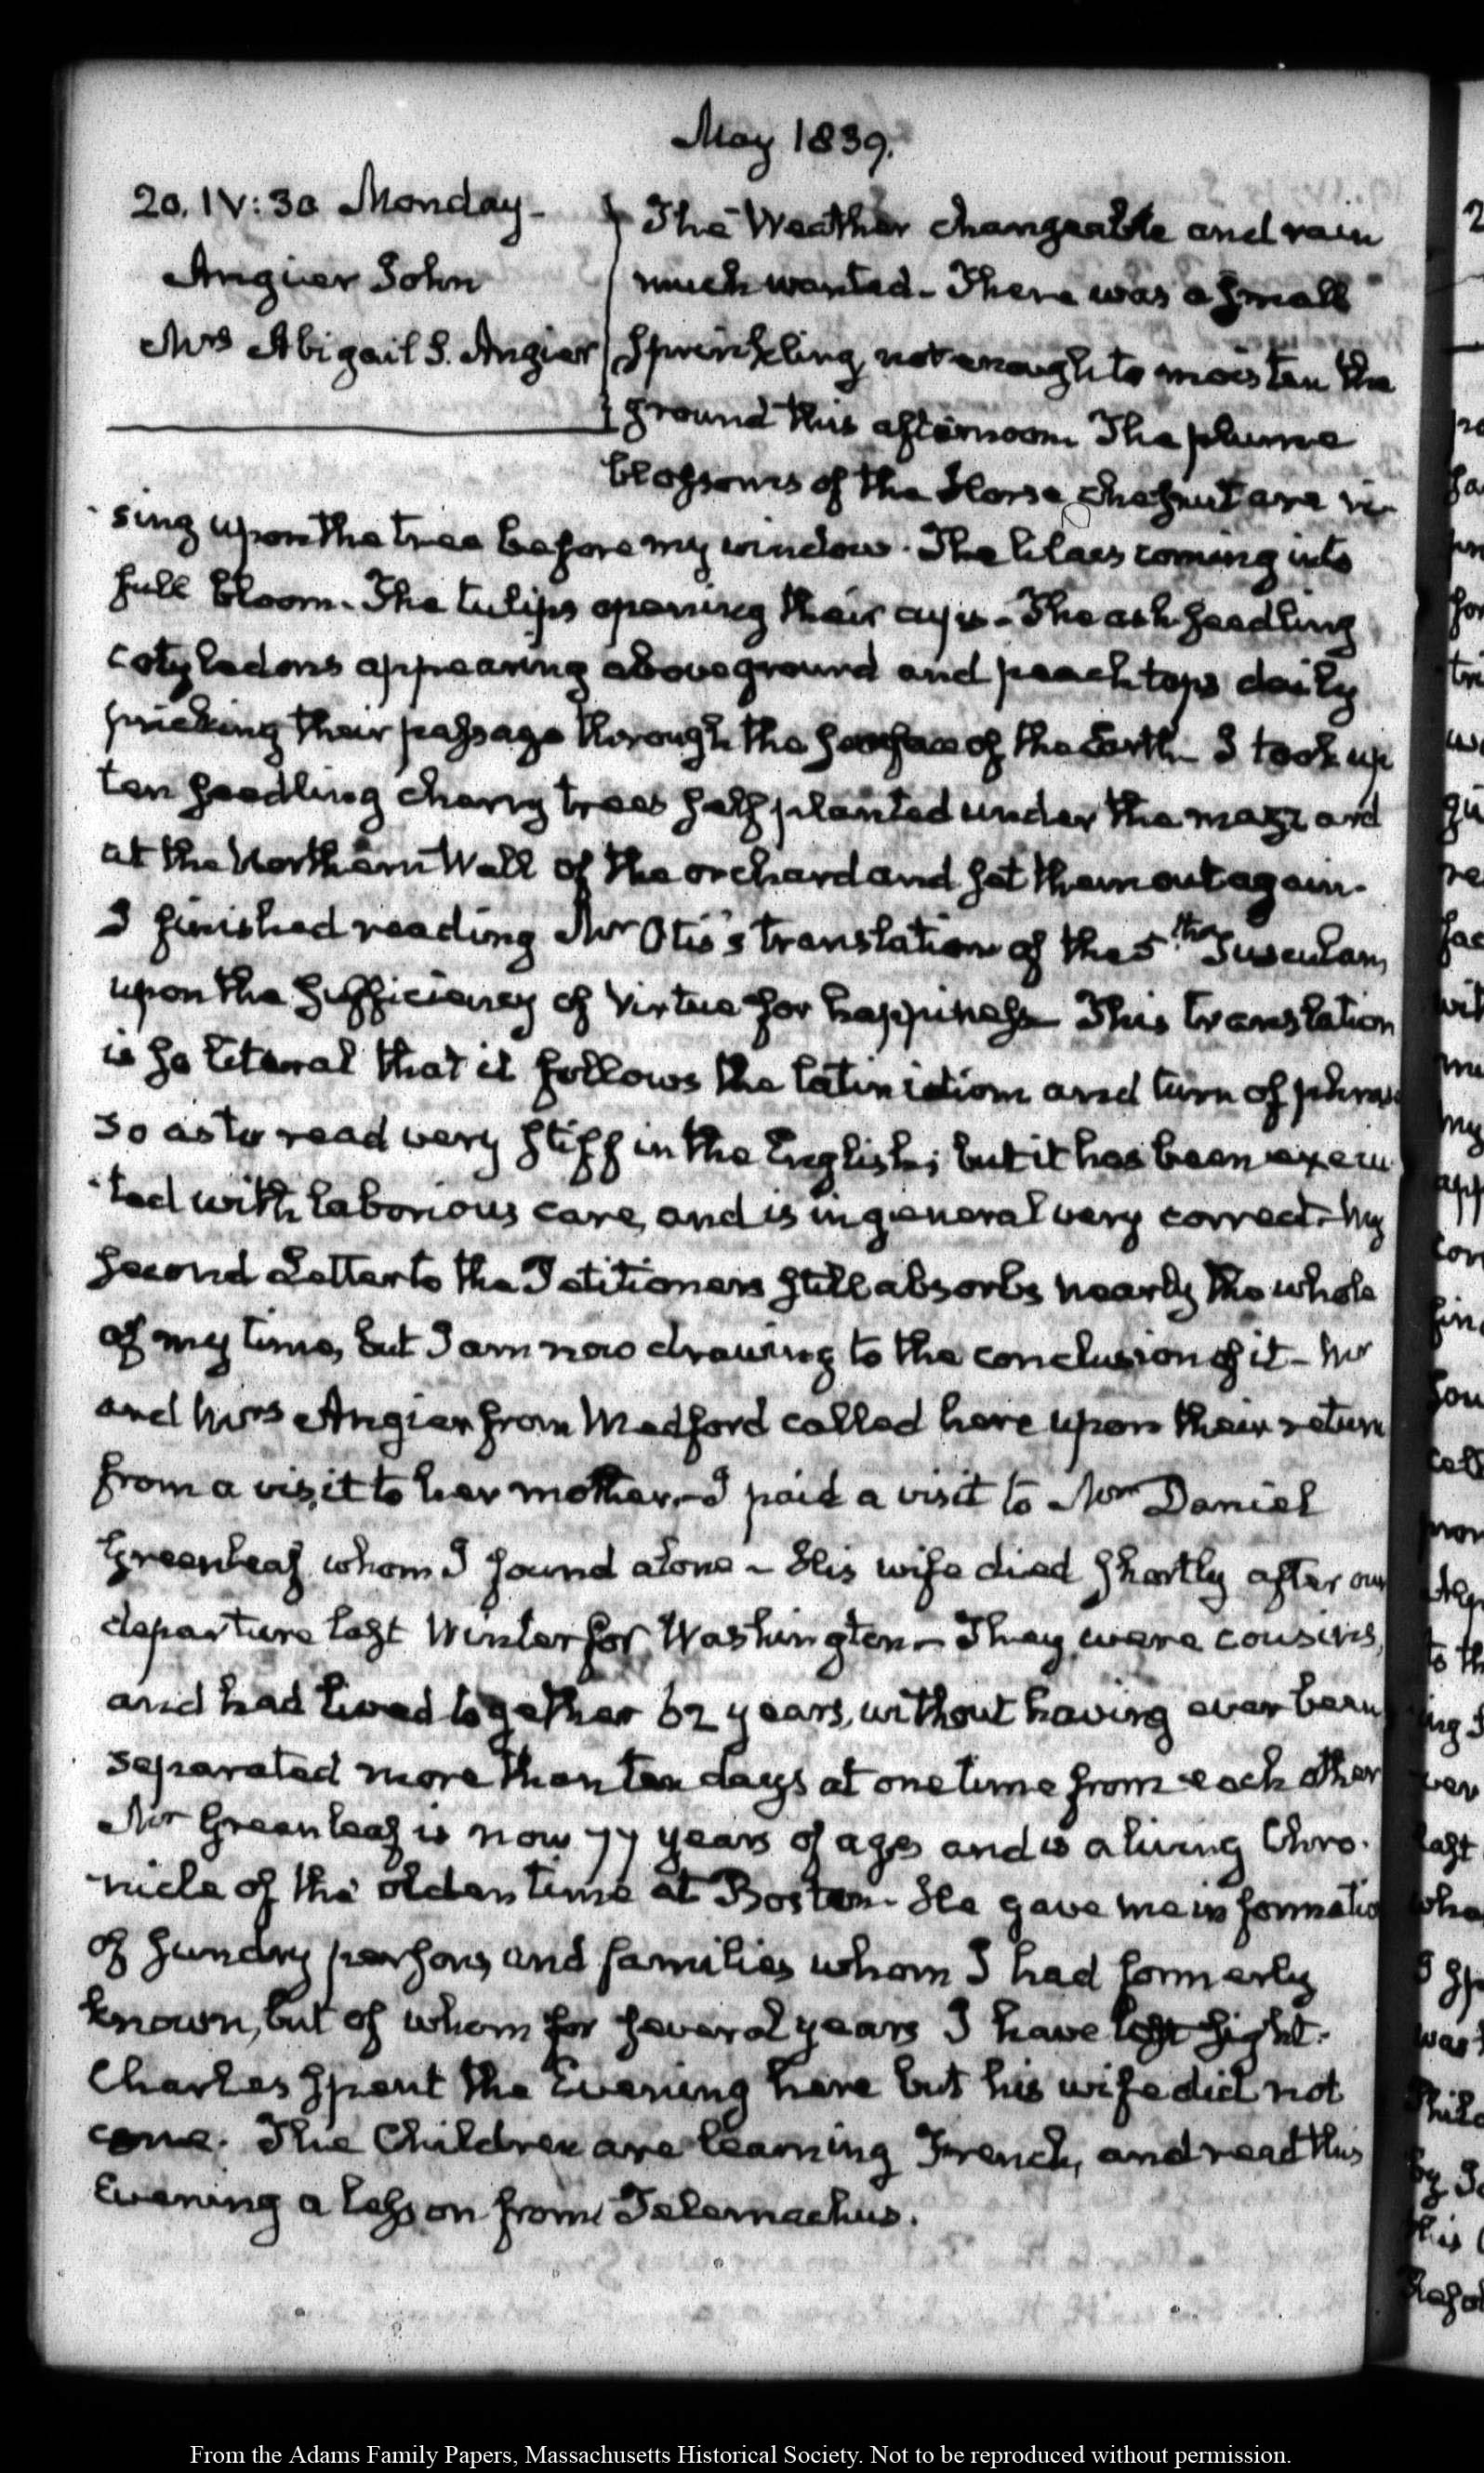 May 1839.
20. IV:30 Monday-
Angier John
Mrs Abigail S. Angier
The Weather changeable and rain
much wanted- There was a small
sprinkling not enough to moisten the
ground this afternoon. The plume
blossoms of the Horse chesnut are ri-
sing upon the tree before my window. The lilacs coming into
full bloom- The tulips opening their cups- The ash seedling
cotyledons appearing above ground and peach tops daily
pricking their passage through the surface of the Earth- I took up
ten seedling cherry trees self planted under the maze and
at the Northern Wall of the orchard and set them out again-
I finished reading Mr Otis's translation of the 5th. Tusculan,
upon the sufficiency of Virtue for happiness- This translation
is so literal that it follows the latin idiom and turn of phrase
so as to read very stiff in the English; but it has been execu
-ted with laborious care, and is in general very correct- My
second Letter to the Petitioners still absorbs nearly the whole
of my time, but I am now drawing to the conclusion of it- Mr
and Mrs Angier from Medford called here upon their return
from a visit to her mother- I paid a visit to Mr Daniel
Greenleaf whom I found alone- His wife died shortly after our
departure last Winter for Washington- They were cousins,
and had lived together 52 years, without having ever been
separated more than ten days at one time from each other
Mr Greenleaf is now 77 years of age and is a living Chro-
-nicle of the olden time at Boston- He gave me informatio
of sundry persons and families whom I had formerly
known, but of whom for several years I have lost sight-
Charles spent the Evening here but his wife did not
come. The Children are learning French, and read this
Evening a lesson from Telemachus.
From the Adams Family Papers, Massachusetts Historical Society. Not to be reproduced without permission.